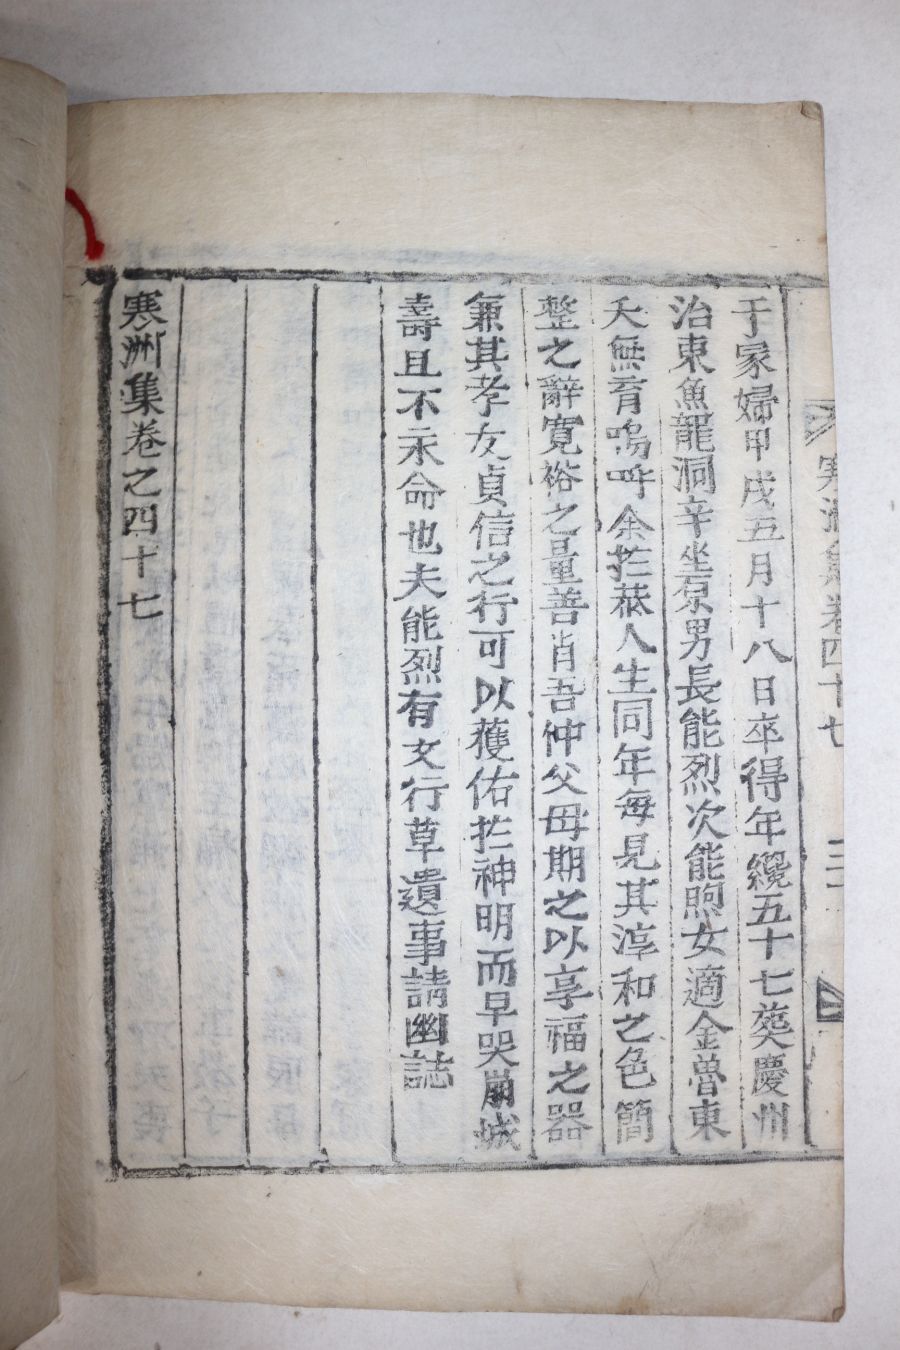 于家婦甲戌五月十八日卒得年纔五十七葬慶州
治東魚龍洞辛坐原男長能烈次能煦女適金魯東
夭無育嗚呼余於葆人生同年每見其淳和之色簡
整之辭寬裕之量善肖吾仲父母期之以享福之器
兼其孝友貞信之行可以獲佑於神明而早哭崩城
壽且不永命也夫能烈有文行草遺事請幽誌
寒洲集卷之四十七
寒洲集卷四十七